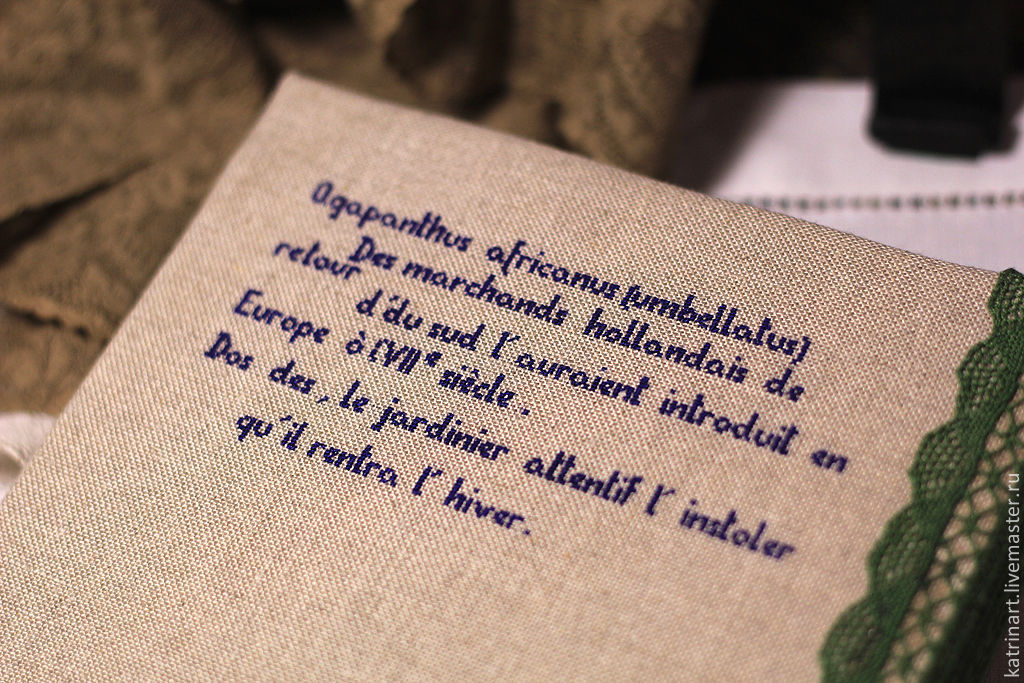 Agapanthus africanus (umbellatus)
Des marchands hollandais de
retour d'du sud l'auraient introduit en
Europe à (VII e siècle.
Dos des, le jardinier attentif l'instoler
qu'il rentra l'hiver.
katrinart.livemaster.ru